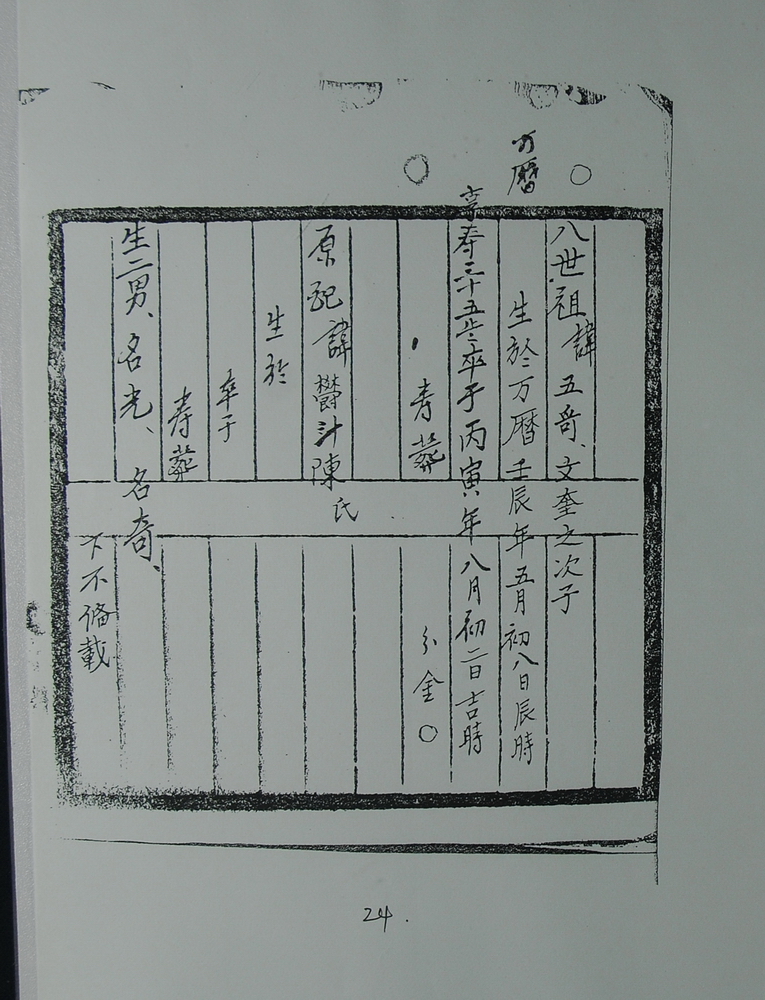 万曆
八世祖諱五奇、文奎之次子
生於万曆壬辰年五月初八日辰時
享寿三十五歩卒于丙寅年八月初二日吉時
寿葬 分金〇
原配諱欝汁陳氏
生於
卒于
寿葬
生二男、名光、名奇、
下不俻載
24.